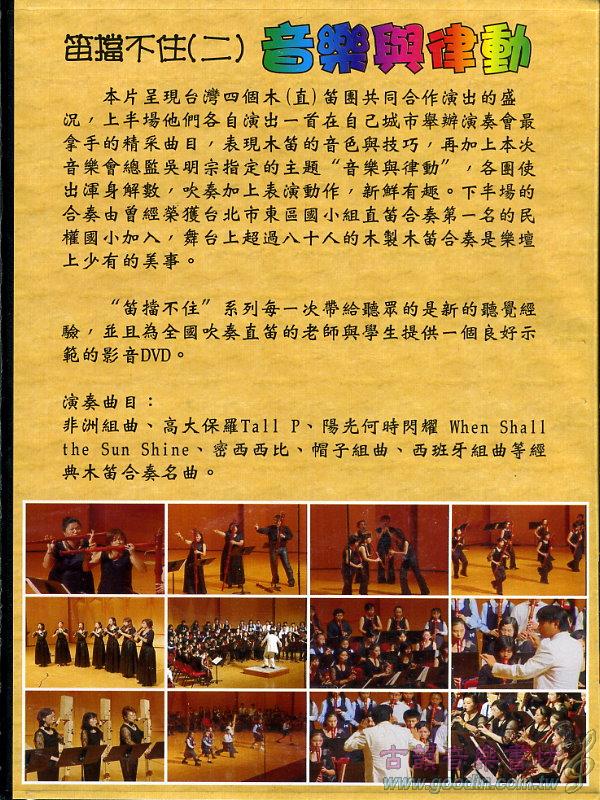 笛擋不住(二) 音樂與律動
本片呈現台灣四個木(直)笛團共同合作演出的盛
況，上半場他們各自演出一首在自己城市舉辦演奏會最
拿手的精采曲目，表現木笛的音色與技巧，再加上本次
音樂會總監吳明宗指定的主題“音樂與律動”，各團使
出渾身解數，吹奏加上表演動作，新鮮有趣。下半場的
合奏由曾經榮獲台北市東區國小組直笛合奏第一名的民
權國小加入，舞台上超過八十人的木製木笛合奏是樂壇
上少有的美事。
“笛擋不住”系列每一次帶給聽眾的是新的聽覺經
驗，並且為全國吹奏直笛的老師與學生提供一個良好示
範的影音DVD。
演奏曲目：
非洲組曲、高大保羅Tall P、陽光何時閃耀 When Shall
the Sun Shine、密西西比、帽子組曲、西班牙組曲等經
典木笛合奏名曲。
www.goodm.com.tw